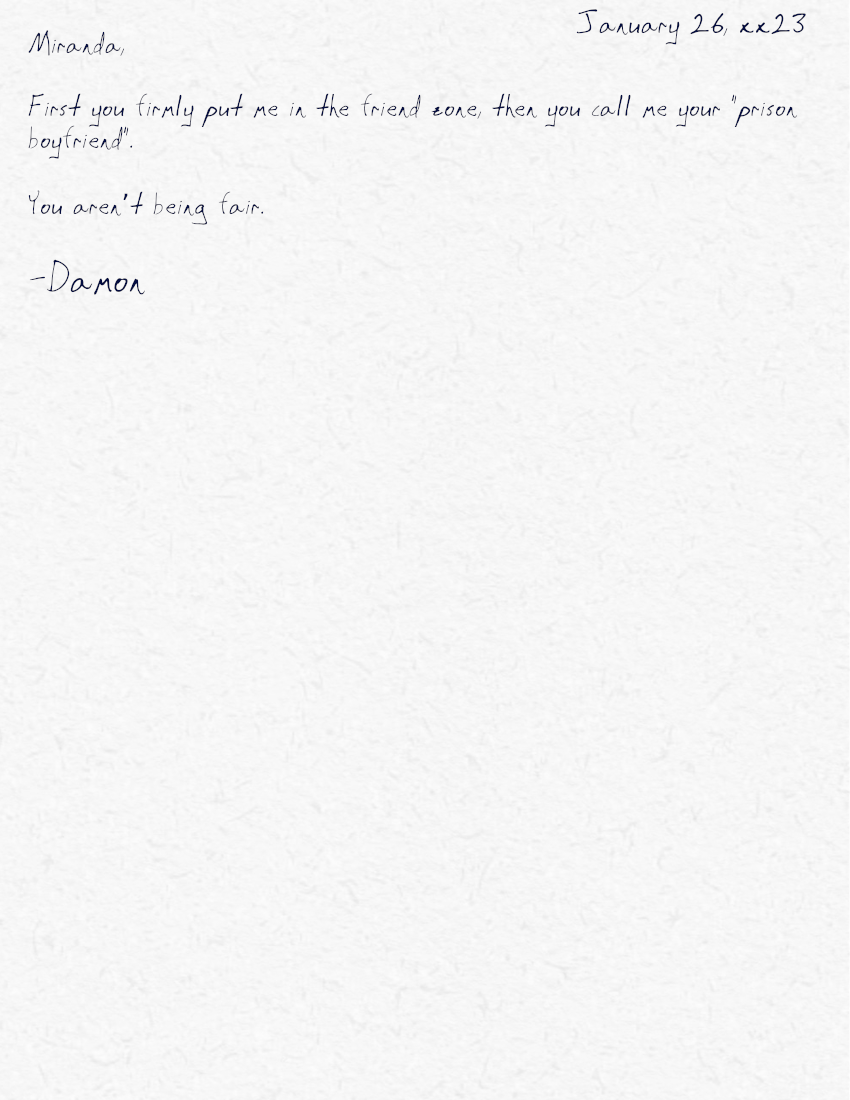 January 26, xx23
Miranda,
First you firmly put me in the friend zone, then you call me your "prison
boyfriend".
You aren't being fair.
-Damon